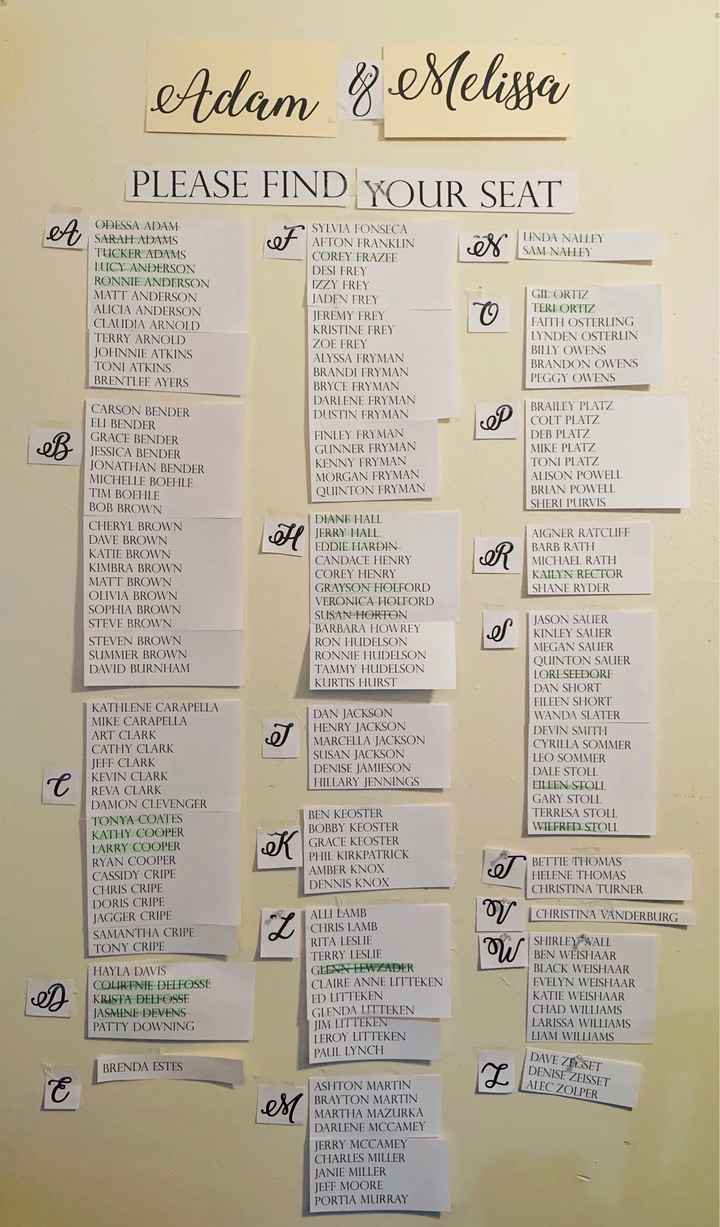 Adam & Melissa
PLEASE FIND YOUR SEAT
A
ODESSA ADAM
SARAH ADAMS
TUCKER ADAMS
LUCY ANDERSON
RONNIE ANDERSON
MATT ANDERSON
ALICIA ANDERSON
CLAUDIA ARNOLD
TERRY ARNOLD
JOHNNIE ATKINS
TONI ATKINS
BRENTLEE AYERS
B
CARSON BENDER
ELI BENDER
GRACE BENDER
JESSICA BENDER
JONATHAN BENDER
MICHELLE BOEHLE
TIM BOEHLE
BOB BROWN
CHERYL BROWN
DAVE BROWN
KATIE BROWN
KIMBRA BROWN
MATT BROWN
OLIVIA BROWN
SOPHIA BROWN
STEVE BROWN
STEVEN BROWN
SUMMER BROWN
DAVID BURNHAM
C
KATHLENE CARAPELLA
MIKE CARAPELLA
ART CLARK
CATHY CLARK
JEFF CLARK
KEVIN CLARK
REVA CLARK
DAMON CLEVENGER
TONYA COATES
KATHY COOPER
LARRY COOPER
RYAN COOPER
CASSIDY CRIPE
CHRIS CRIPE
DORIS CRIPE
JAGGER CRIPE
SAMANTHA CRIPE
TONY CRIPE
D
HAYLA DAVIS
COURTNIE DELFOSSE
KRISTA DELFOSSE
JASMINE DEVENS
PATTY DOWNING
E
BRENDA ESTES
F
SYLVIA FONSECA
AFTON FRANKLIN
COREY FRAZEE
DESI FREY
IZZY FREY
JADEN FREY
JEREMY FREY
KRISTINE FREY
ZOE FREY
ALYSSA FRYMAN
BRANDI FRYMAN
BRYCE FRYMAN
DARLENE FRYMAN
DUSTIN FRYMAN
FINLEY FRYMAN
GUNNER FRYMAN
KENNY FRYMAN
MORGAN FRYMAN
QUINTON FRYMAN
H
DIANE HALL
JERRY HALL
EDDIE HARDIN
CANDACE HENRY
COREY HENRY
GRAYSON HOLFORD
VERONICA HOLFORD
SUSAN HORTON
BARBARA HOWREY
RON HUDELSON
RONNIE HUDELSON
TAMMY HUDELSON
KURTIS HURST
J
DAN JACKSON
HENRY JACKSON
MARCELLA JACKSON
SUSAN JACKSON
DENISE JAMIESON
HILLARY JENNINGS
K
BEN KEOSTER
BOBBY KEOSTER
GRACE KEOSTER
PHIL KIRKPATRICK
AMBER KNOX
DENNIS KNOX
L
ALLI LAMB
CHRIS LAMB
RITA LESLIE
TERRY LESLIE
GLENN LEWZADER
CLAIRE ANNE LITTEKEN
ED LITTEKEN
GLENDA LITTEKEN
JIM LITTEKEN
LEROY LITTEKEN
PAUL LYNCH
M
ASHTON MARTIN
BRAYTON MARTIN
MARTHA MAZURKA
DARLENE MCCAMEY
JERRY MCCAMEY
CHARLES MILLER
JANIE MILLER
JEFF MOORE
PORTIA MURRAY
N
LINDA NALLEY
SAM NALLEY
O
GIL ORTIZ
TERI ORTIZ
FAITH OSTERLING
LYNDEN OSTERLIN
BILLY OWENS
BRANDON OWENS
PEGGY OWENS
P
BRAILEY PLATZ
COLT PLATZ
DEB PLATZ
MIKE PLATZ
TONI PLATZ
ALISON POWELL
BRIAN POWELL
SHERI PURVIS
R
AIGNER RATCLIFF
BARB RATH
MICHAEL RATH
KAILYN RECTOR
SHANE RYDER
S
JASON SAUER
KINLEY SAUER
MEGAN SAUER
QUINTON SAUER
LORI SEEDORF
DAN SHORT
EILEEN SHORT
WANDA SLATER
DEVIN SMITH
CYRILLA SOMMER
LEO SOMMER
DALE STOLL
EILEEN STOLL
GARY STOLL
TERRESA STOLL
WILFRED STOLL
T
BETTIE THOMAS
HELENE THOMAS
CHRISTINA TURNER
V
CHRISTINA VANDERBURG
W
SHIRLEY WALL
BEN WEISHAAR
BLACK WEISHAAR
EVELYN WEISHAAR
KATIE WEISHAAR
CHAD WILLIAMS
LARISSA WILLIAMS
LIAM WILLIAMS
Z
DAVE ZEISSET
DENISE ZEISSET
ALEC ZOLPER